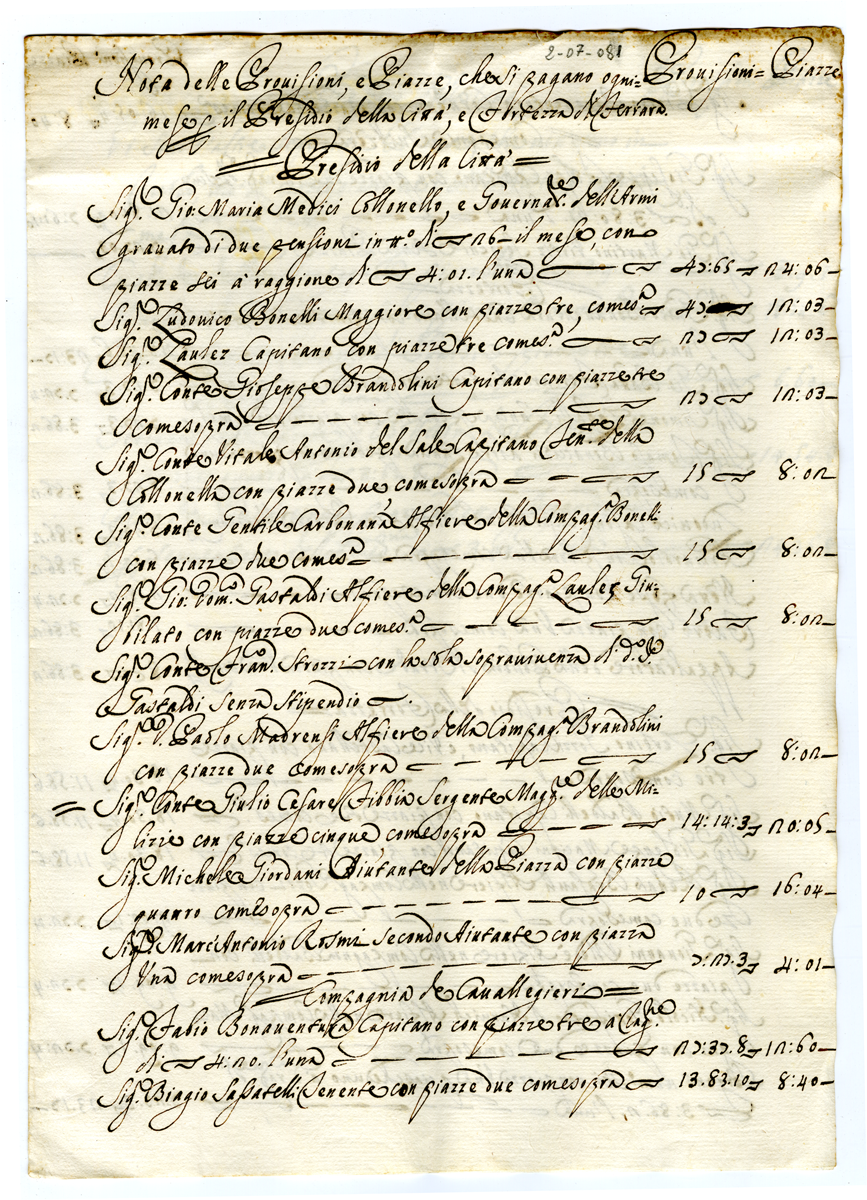 2-07-081
Nota delle Provisioni, e Piazze, che si pagano ogni= Provisioni= Piazze
mese p il Presidio della Città, e Fortezza di Ferrara.
= Presidio della Città =
Sigr. Gio: Maria Medici Collonello, e Governat.re dell'Armi
gravato di due pensioni in tt.o di 26 - il mese, con
piazze sei à raggione di 4: 01. l'una 43:65 24: 06-
Sigr. Ludovico Bonelli Maggiore con piazze tre, comes.a 12: 03-
Sigr. Laulez Capitano con piazze tre comes.a 12: 03-
Sigr. Conte Gioseppe Brandolini Capitano con piazze tre
comesopra 12: 03-
Sigr. Conte Vitale Antonio del Sale Capitano Ten.te della
Collonella con piazze due, comesopra 15 8: 02
Sigr. Conte Gentile Carbonana Alfiere della Compag.a Bonelli
con piazze due comes.a 15 8: 02-
Sigr. Gio: Dom.o Gastaldi Alfiere della Compag.a Laulez Giu=
bilato con piazze due comes.a 15 8: 02-
Sigr. Conte Fran.o Strozzi con la sola sopravivenza di d.o S.r
Gastaldi senza stipendio.
Sigr. Paolo Madrensi Alfiere della Compag.a Brandolini
con piazze due comesopra 15 8: 02-
= Sigr. Conte Giulio Cesare Fibbia Sergente Magg.re delle Mi=
lizie con piazze cinque comesopra 14: 14: 3 20: 05-
Sigr. Michele Giordani Aiutante della Piazza con piazze
quattro comesopra 10 16: 04-
Sigr. Marc'Antonio Rosmi secondo Aiutante con piazza
Una comesopra 4: 01-
= Compagnia de Cavallegieri =
Sigr. Fabio Bonaventura Capitano con piazze tre a rag.ne
di 4: 20. l'una 23:33.8 12: 60-
Sigr. Biagio Sassatelli Tenente con piazze due comesopra 13.83.10 8: 40-